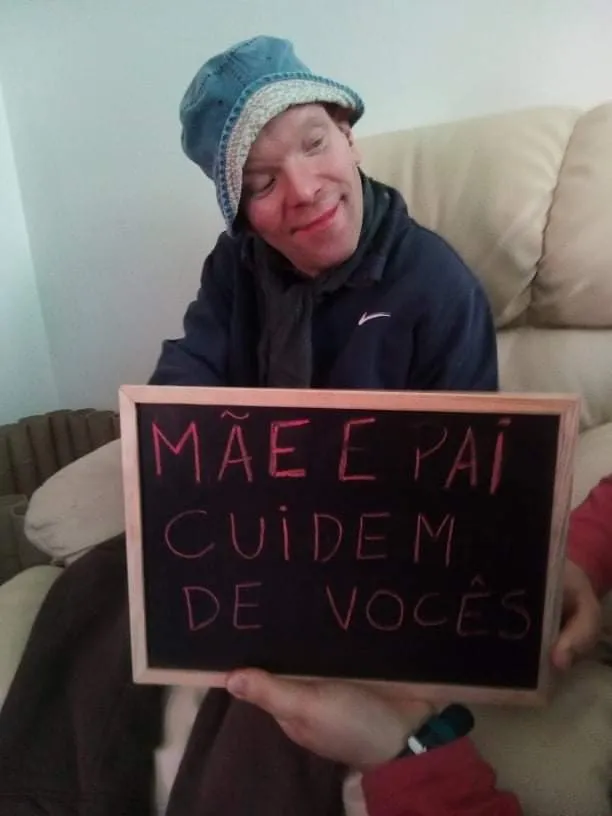 MÃE E PAI
CUIDEM
DE VOCÊS